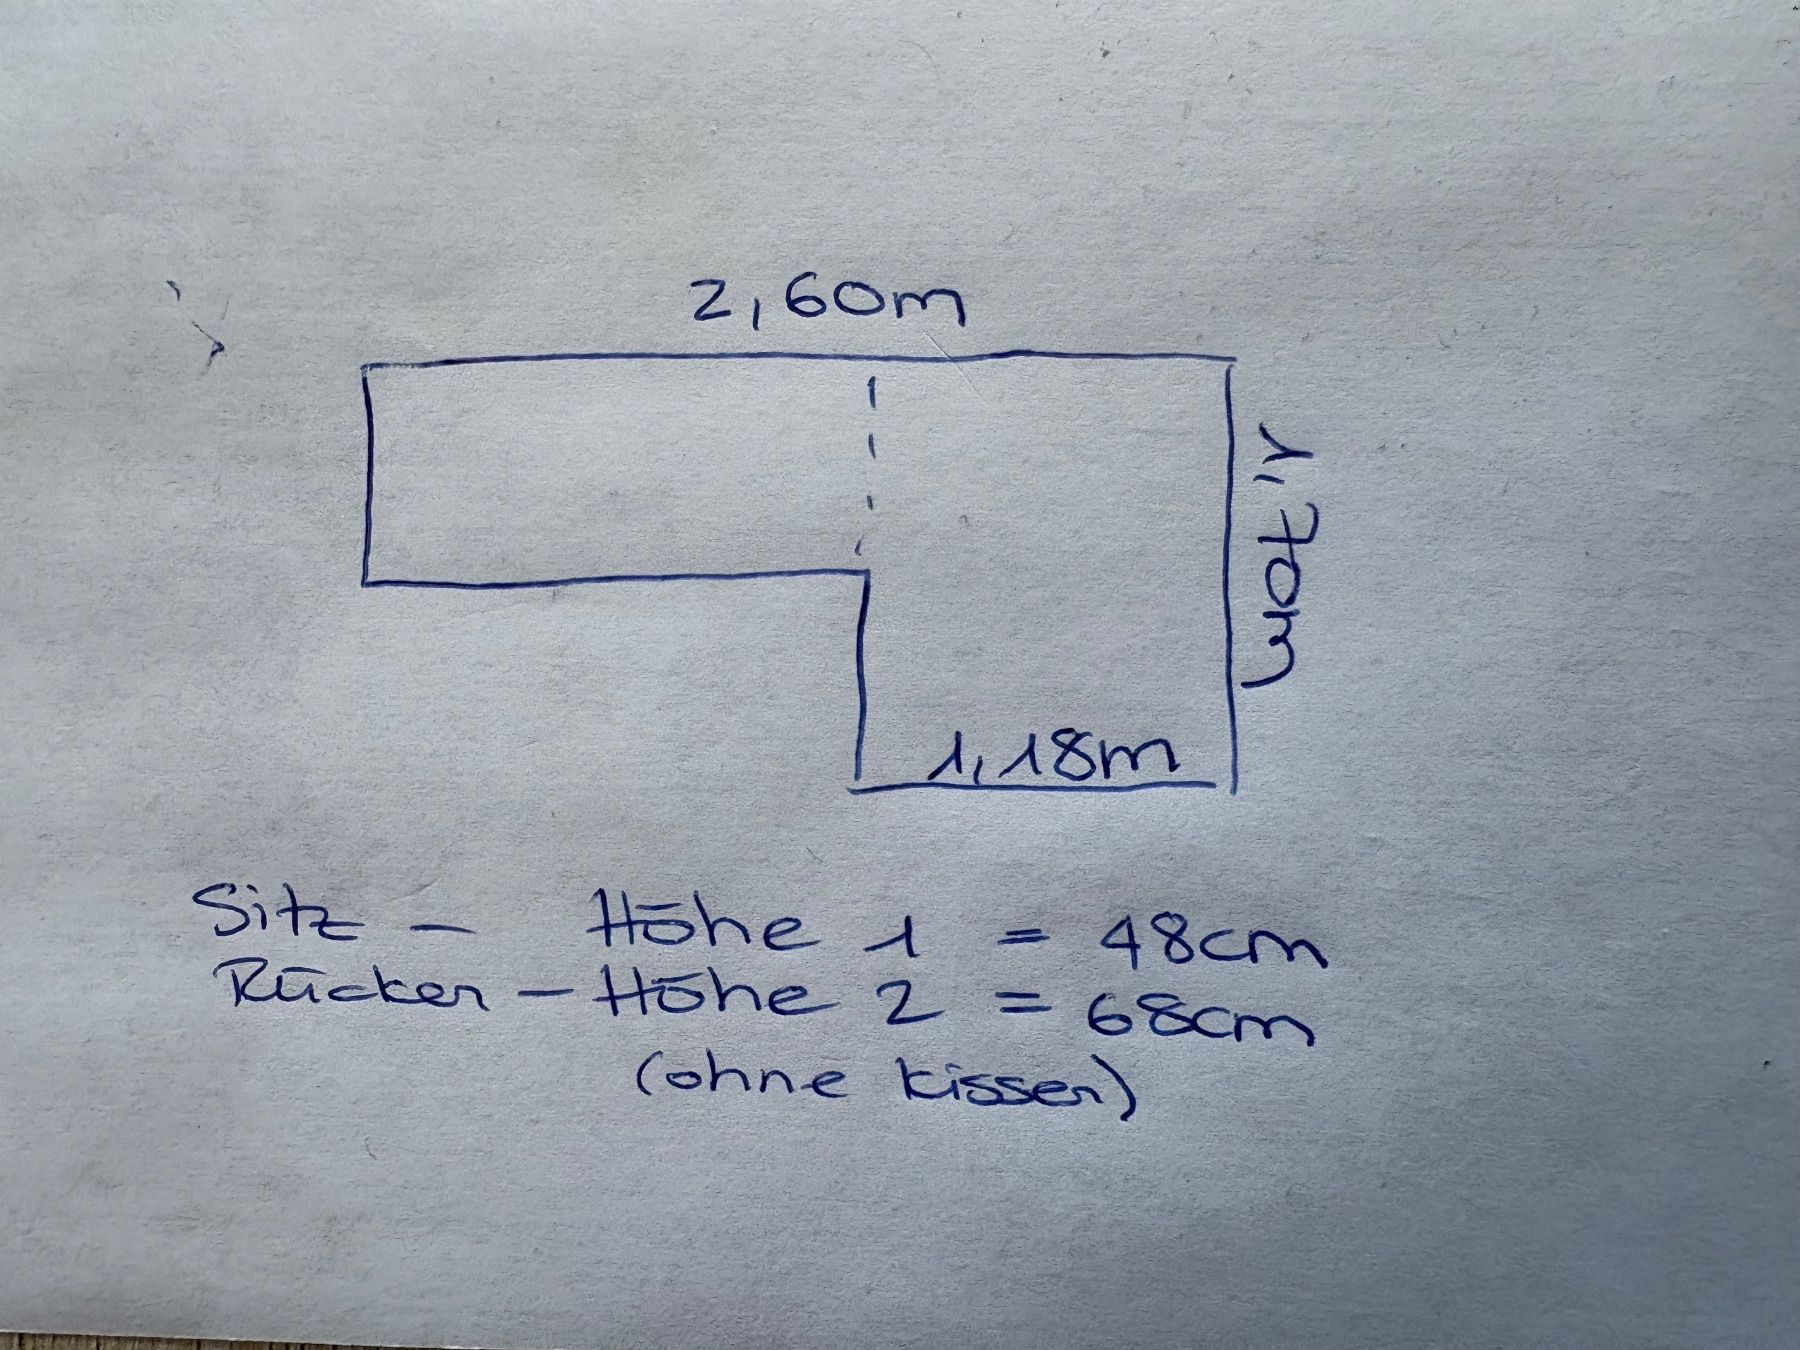 2,60m
1,70m
1,18m
Sitz - Höhe 1 = 48cm
Rücken - Höhe 2 = 68cm
(ohne kissen)